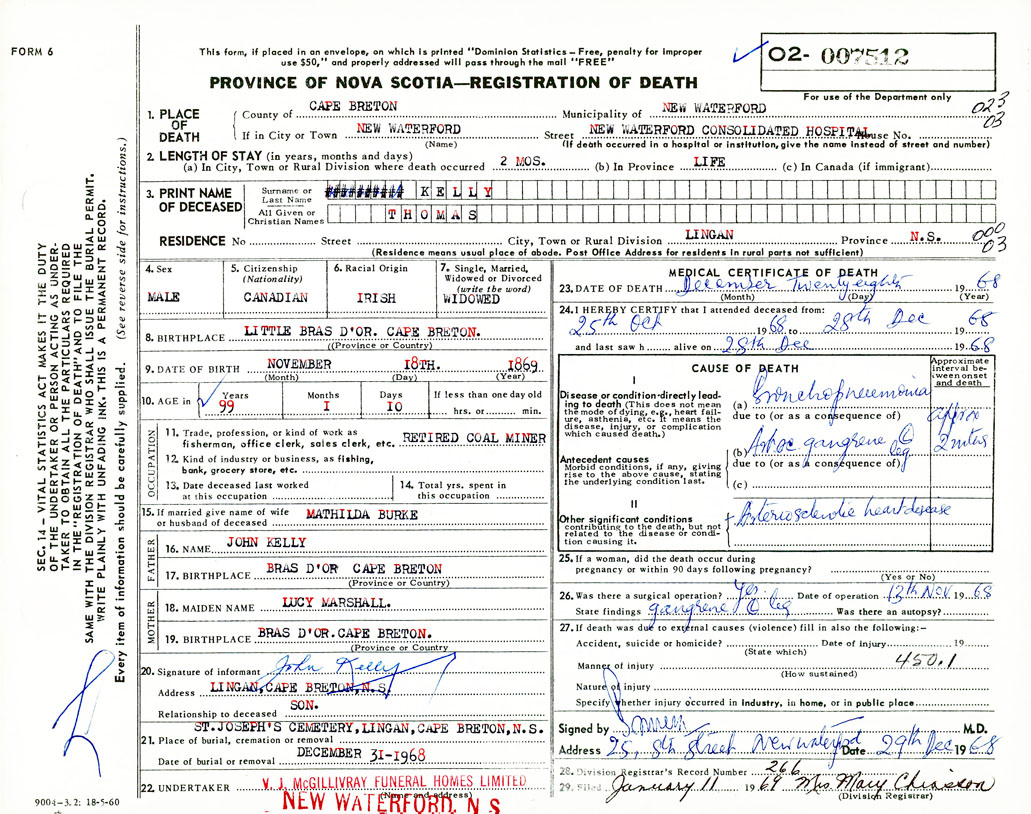 FORM 6
This form, if placed in an envelope, on which is printed "Dominion Statistics – Free, penalty for improper
use $50," and properly addressed will pass through the mail "FREE"
PROVINCE OF NOVA SCOTIA—REGISTRATION OF DEATH
O2- 007512
For use of the Department only
023
03
1. PLACE OF DEATH
County of CAPE BRETON Municipality of NEW WATERFORD
If in City or Town NEW WATERFORD Street NEW WATERFORD CONSOLIDATED HOSPITAL House No.
(Name) (If death occurred in a hospital or institution, give the name instead of street and number)
2. LENGTH OF STAY (in years, months and days)
(a) In City, Town or Rural Division where death occurred 2 MOS. (b) In Province LIFE (c) In Canada (if immigrant)
3. PRINT NAME OF DECEASED
Surname or Last Name KELLY
All Given or Christian Names THOMAS
RESIDENCE No Street City, Town or Rural Division LINGAN Province N.S.
000
03
(Residence means usual place of abode. Post Office Address for residents in rural parts not sufficient)
4. Sex
MALE
5. Citizenship
(Nationality)
CANADIAN
6. Racial Origin
IRISH
7. Single, Married,
Widowed or Divorced
(write the word)
WIDOWED
8. BIRTHPLACE LITTLE BRAS D'OR. CAPE BRETON.
(Province or County)
9. DATE OF BIRTH NOVEMBER 18TH. 1869
(Month) (Day) (Year)
10. AGE in
Years
99
Months
1
Days
10
If less than one day old
hrs. or min.
OCCUPATION
11. Trade, profession, or kind of work as
fisherman, office clerk, sales clerk, etc. RETIRED COAL MINER
12. Kind of industry or business, as fishing,
bank, grocery store, etc.
13. Date deceased last worked
at this occupation
14. Total yrs. spent in
this occupation
15. If married give name of wife
or husband of deceased MATHILDA BURKE
FATHER
16. NAME JOHN KELLY
17. BIRTHPLACE BRAS D'OR CAPE BRETON
(Province or Country)
MOTHER
18. MAIDEN NAME LUCY MARSHALL.
19. BIRTHPLACE BRAS D'OR.CAPE BRETON.
(Province or Country
20. Signature of informant John Kelly
Address LINGAN,CAPE BRETON,N.S
Relationship to deceased SON.
ST.JOSEPH'S CEMETERY,LINGAN,CAPE BRETON,N.S.
21. Place of burial, cremation or removal
Date of burial or removal DECEMBER 31-1968
22. UNDERTAKER V. J. McGILLIVRAY FUNERAL HOMES LIMITED
(Name and address)
NEW WATERFORD, N S
MEDICAL CERTIFICATE OF DEATH
23. DATE OF DEATH December Twenty eighth 19 68
(Month) (Day) (Year)
24. I HEREBY CERTIFY that I attended deceased from:
25th Oct 1968 to 28th Dec 19 68
and last saw h alive on 28th Dec 19 68
CAUSE OF DEATH
Approximate
interval be-
tween onset
and death
I
Disease or condition directly lead-
ing to death (This does not mean
the mode of dying, e.g., heart fail-
ure, asthenia, etc. It means the
disease, injury, or complication
which caused death.)
(a) Bronchopneumonia
due to (or as a consequence of)
approx
2 mths
(b) gangrene leg
due to (or as a consequence of)
Antecedent causes
Morbid conditions, if any, giving
rise to the above cause, stating
the underlying condition last.
(c)
II
Other significant conditions
contributing to the death, but not
related to the disease or condi-
tion causing it.
+ Arteriosclerotic heart disease
25. If a woman, did the death occur during
pregnancy or within 90 days following pregnancy?
(Yes or No)
26. Was there a surgical operation? Yes. Date of operation 13th Nov. 19 68
State findings gangrene leg Was there an autopsy?
27. If death was due to external causes (violence) fill in also the following:–
Accident, suicide or homicide? Date of injury 19
(State which)
Manner of injury 450.1
(How sustained)
Nature of injury
Specify whether injury occurred in industry, in home, or in public place
Signed by M.D.
Address 25, 8th Street New Waterford Date 29th Dec 1968
28. Division Registrar's Record Number 266
29. Filed January 11 1969 Mrs Mary Chiasson
(Division Registrar)
SEC. 14 – VITAL STATISTICS ACT MAKES IT THE DUTY
OF THE UNDERTAKER OR PERSON ACTING AS UNDER-
TAKER TO OBTAIN ALL THE PARTICULARS REQUIRED
IN THE "REGISTRATION OF DEATH" AND TO FILE THE
SAME WITH THE DIVISION REGISTRAR WHO SHALL ISSUE THE BURIAL PERMIT.
WRITE PLAINLY WITH UNFADING INK. THIS IS A PERMANENT RECORD.
Every item of information should be carefully supplied. (See reverse side for instructions.)
9004–3.2: 18-5-60